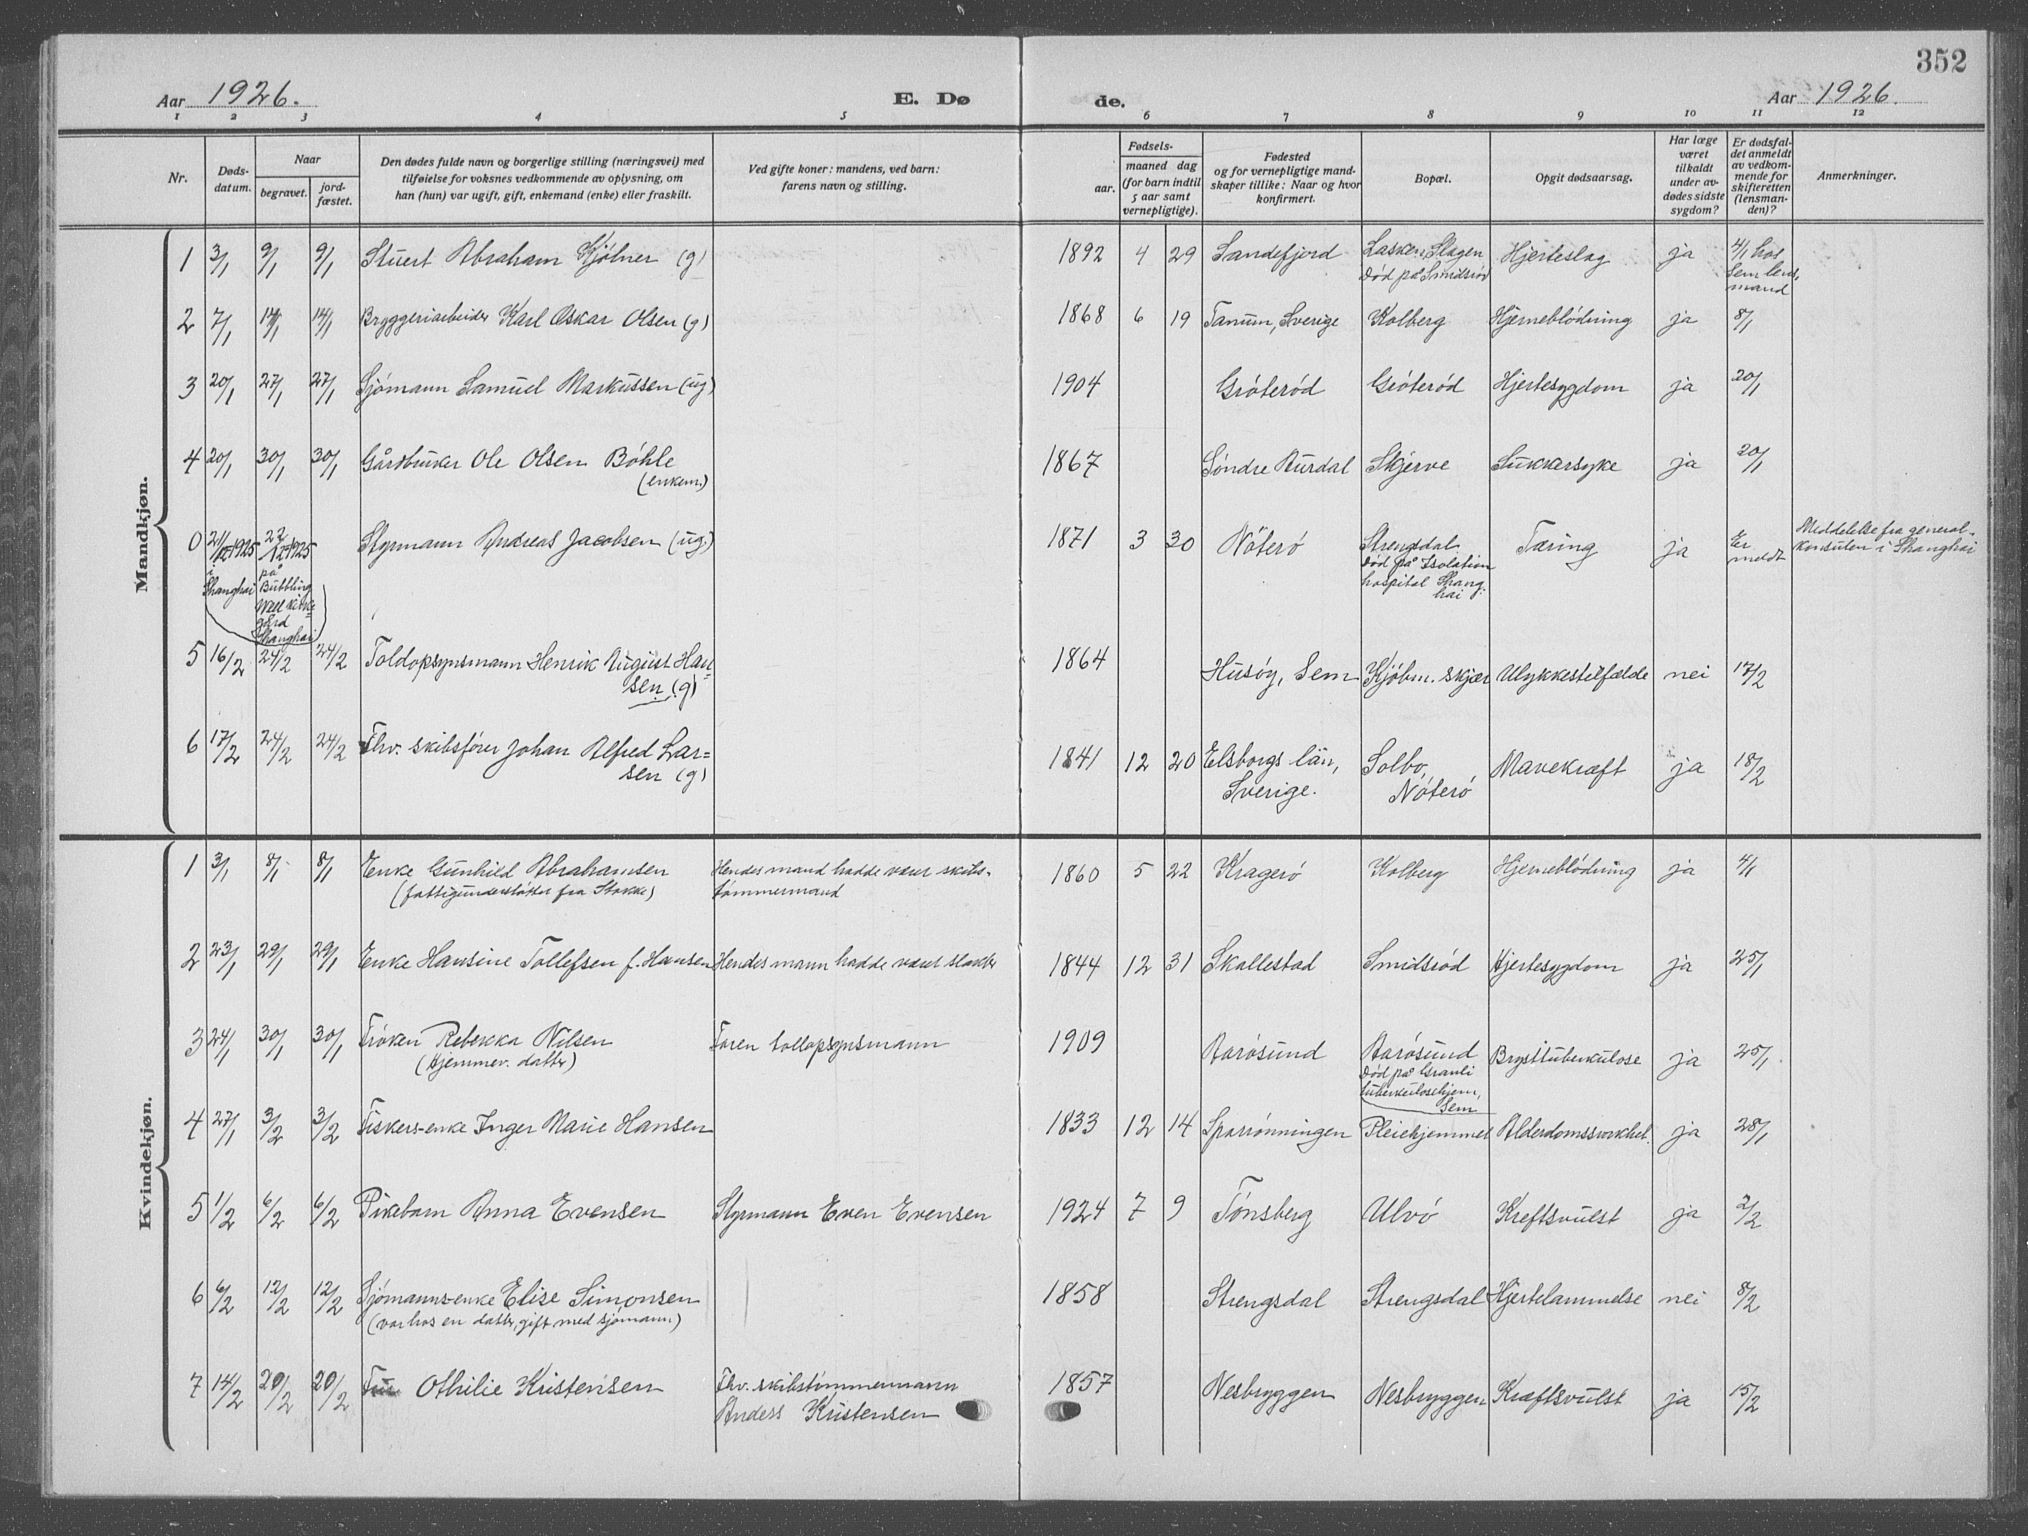 352
Aar 1926. E. Dø de. Aar 1926.
1 2 3 4 5 6 7 8 9 10 11 12
Nr. Døds-datum. Naar begravet. jord-fæstet. Den dødes fulde navn og borgerlige stilling (næringsvei) med tilføielse for voksnes vedkommende av oplysning, om han (hun) var ugift, gift, enkemand (enke) eller fraskilt. Ved gifte koner: mandens, ved barn: farens navn og stilling. Fødsels- aar. maaned dag (for barn indtil 5 aar samt vernepligtige). Fødested og for vernepligtige mand-skaper tillike: Naar og hvor konfirmert. Bopæl. Opgit dødsaarsag. Har læge været tilkaldt under av-dødes sidste sygdom? Er dødsfal-det anmeldt av vedkom-mende for skifteretten (lensman-den)? Anmerkninger.
Mandkjøn.
1 3/1 9/1 9/1 Stuert Abraham Kjølner (g) 1892 4 29 Sandefjord Lasken, Slagen Død på Smidsrød Hjerteslag ja 4/1 hos Sem lens-mand
2 7/1 14/1 14/1 Bryggeriarbeider Karl Oskar Olsen (g) 1868 6 19 Tanum, Sverige Kolberg Hjerneblödning ja 8/1
3 20/1 27/1 27/1 Sjómann Samuel Markussen (ug) 1904 Gróteród Gróteród Hjertesygdom ja 20/1
4 20/1 30/1 30/1 Gårdbruker Ole Olsen Böhle (enkem.) 1867 Söndre Aurdal Skjerve Sukkersyke ja 20/1
0 21/12 1925 i Shanghai 22/12 1925 på Bubbling Well kirke-gård Shanghai Styrmann Andreas Jacobsen (ug.) 1871 3 30 Nöteró Strengsdal Död på Isolation hospital Shang-hai Tæring ja Er meldt Meddelelse fra general-konsulen i Shanghai
5 16/2 24/2 24/2 Toldopsynsmann Henrik August Han-sen (g) 1864 Husöy, Sem Kjöbm. skjær Ulykkestilfælde nei 17/2
6 17/2 24/2 24/2 Fhv. skibsförer Johan Alfred Lar-sen (g) 1841 12 20 Elsborgs län, Sverige. Solbo, Nóteró Mavekræft ja 18/2
Kvindekjøn.
1 3/1 8/1 8/1 Enke Gunhild Abrahamsen (fattigunderstöttet fra Stokke) Hendes mand hadde været skibs-tömmermand 1860 5 22 Krageró Kolberg Hjerneblódning ja 4/1
2 23/1 29/1 29/1 Enke Hansine Tollefsen f. Hansen Hendes mann hadde været slakter 1844 12 31 Skallestad Smidsród Hjertesygdom ja 25/1
3 24/1 30/1 30/1 Fróken Rebekka Nilsen (Hjemmev. datter) Faren tollopsynsmann 1909 Aarósund Aarósund Död på Granli tuberkulosehjem, Sem Brysttuberkulose ja 25/1
4 27/1 3/2 3/2 Fiskers-enke Inger Marie Hansen 1833 12 14 Sparrónningen Pleiehjemmet Alderdomssvækhet. ja 28/1
5 1/2 6/2 6/2 Pikebarn Anna Evensen Styrmann Even Evensen 1924 7 9 Tönsberg Ulvö Kreftsvulst ja 2/2
6 6/2 12/2 12/2 Sjömanns-enke Elise Simonsen (var hos en datter, gift med sjömann) 1858 Strengsdal Strengsdal Hjertelammelse nei 8/2
7 14/2 20/2 20/2 Fru Othilie Kristensen Fhv. skibstömmermann Anders Kristensen 1857 Nesbryggen Nesbryggen Kræftsvulst ja 15/2